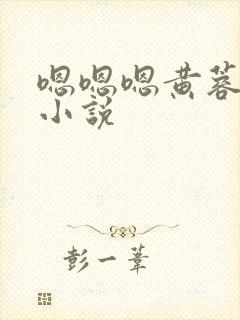 嗯嗯嗯黄蓉
小说
彭一苇